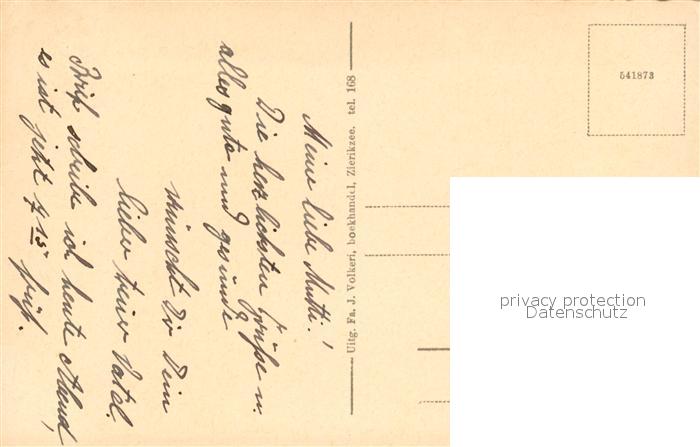 Meine liebe Mutti!
Die herzlichsten Grüße u.
alles gute und gesunde
wünscht Dir Dein
lieber treuer Vatel.
Brief schreibe ich heute Abend,
es ist jetzt 7 15 früh.
Uitg. Fa. J. Volkeri, boekhandel, Zierikzee. tel. 168
541873
privacy protection
Datenschutz